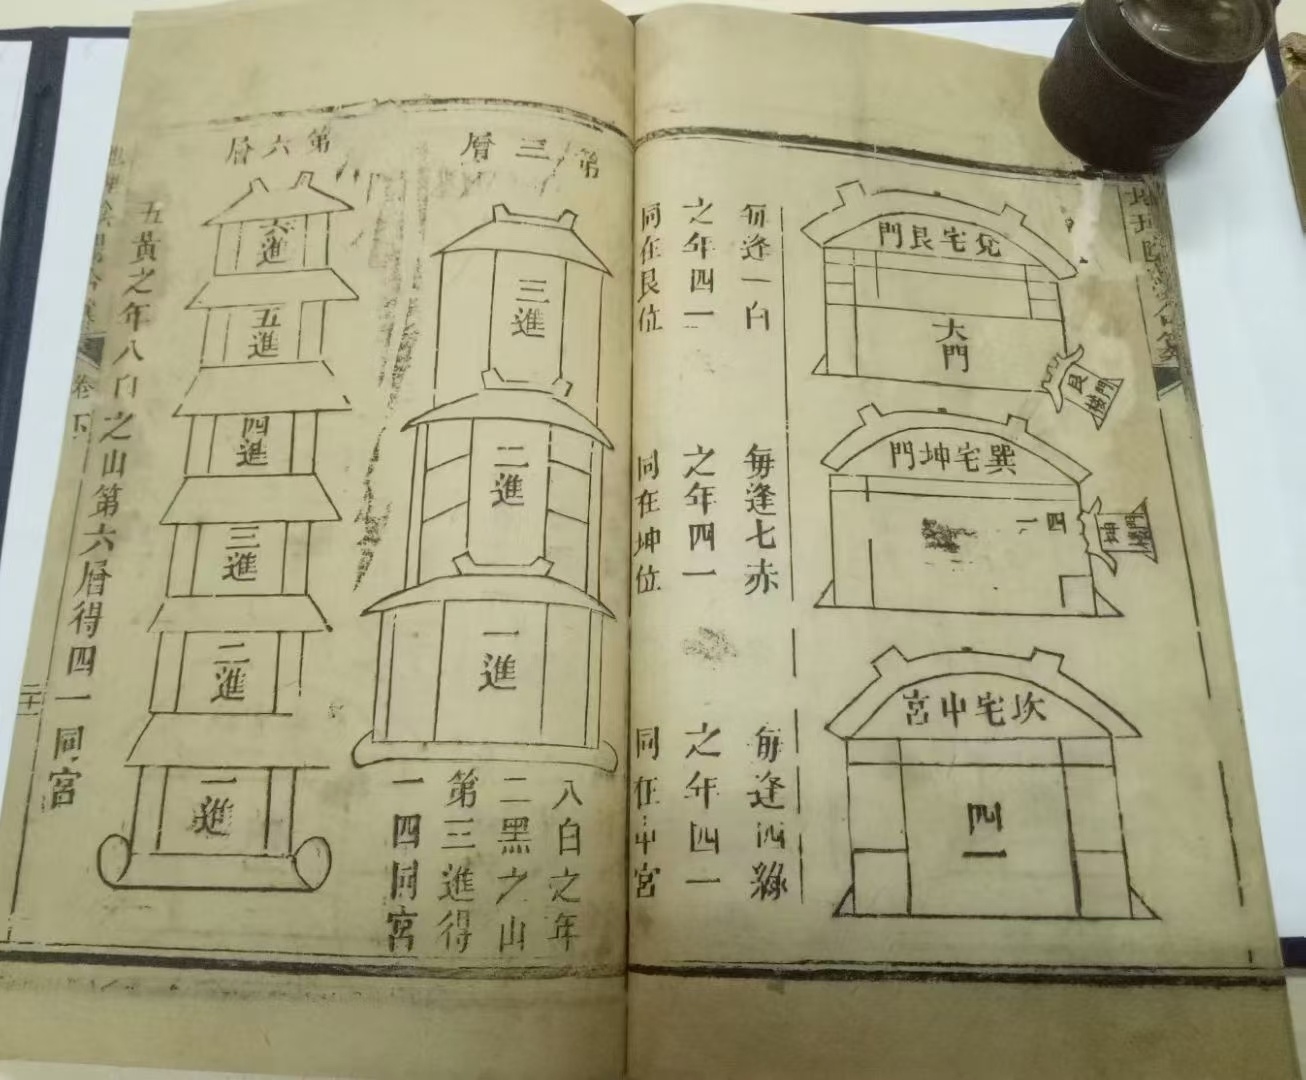 兌宅艮門
大門
艮
樓門
每逢一白
之年四一
同在艮位
巽宅坤門
四一
坤
樓門
每逢七赤
之年四一
同在坤位
坎宅中宮
四一
每逢四綠
之年四一
同在中宮
第三層
三進
二進
一進
八白之年
二黑之山
第三進得
一四同宮
第六層
六進
五進
四進
三進
二進
一進
五黃之年八白之山第六層得四一同宮
卷下
二十一